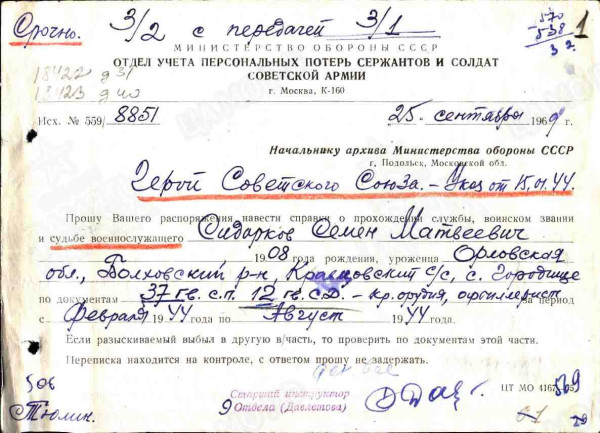 Срочно. 3/2 с передачей 3/1 1
570
538
3 2.
МИНИСТЕРСТВО ОБОРОНЫ СССР
ОТДЕЛ УЧЕТА ПЕРСОНАЛЬНЫХ ПОТЕРЬ СЕРЖАНТОВ И СОЛДАТ
СОВЕТСКОЙ АРМИИ
18422 д 31
18423 д 40
г. Москва, К-160
Исх. № 559/8851 25 сентября 1969 г.
Начальнику архива Министерства обороны СССР
г. Подольск, Московской обл.
Герой Советского Союза. - Указ от 15.01.44.
Прошу Вашего распоряжения навести справки о прохождении службы, воинском звании
и судьбе военнослужащего Сидорков Семен Матвеевич
1908 года рождения, уроженца Орловская
обл., Болховский р-н, с/с, с. Городище
по документам 37 гв. с.п. 12 гв. с.д. - ком. орудия, артиллерист за период
с Февраля 44 года по Август 1944 года.
Если разыскиваемый выбыл в другую в/часть, то проверить по документам этой части.
Переписка находится на контроле, с ответом прошу не задерживать.
Старший инструктор
9 Отдела (Давлетова)
ЦТ МО 4167
569
506
Тюлин.
29